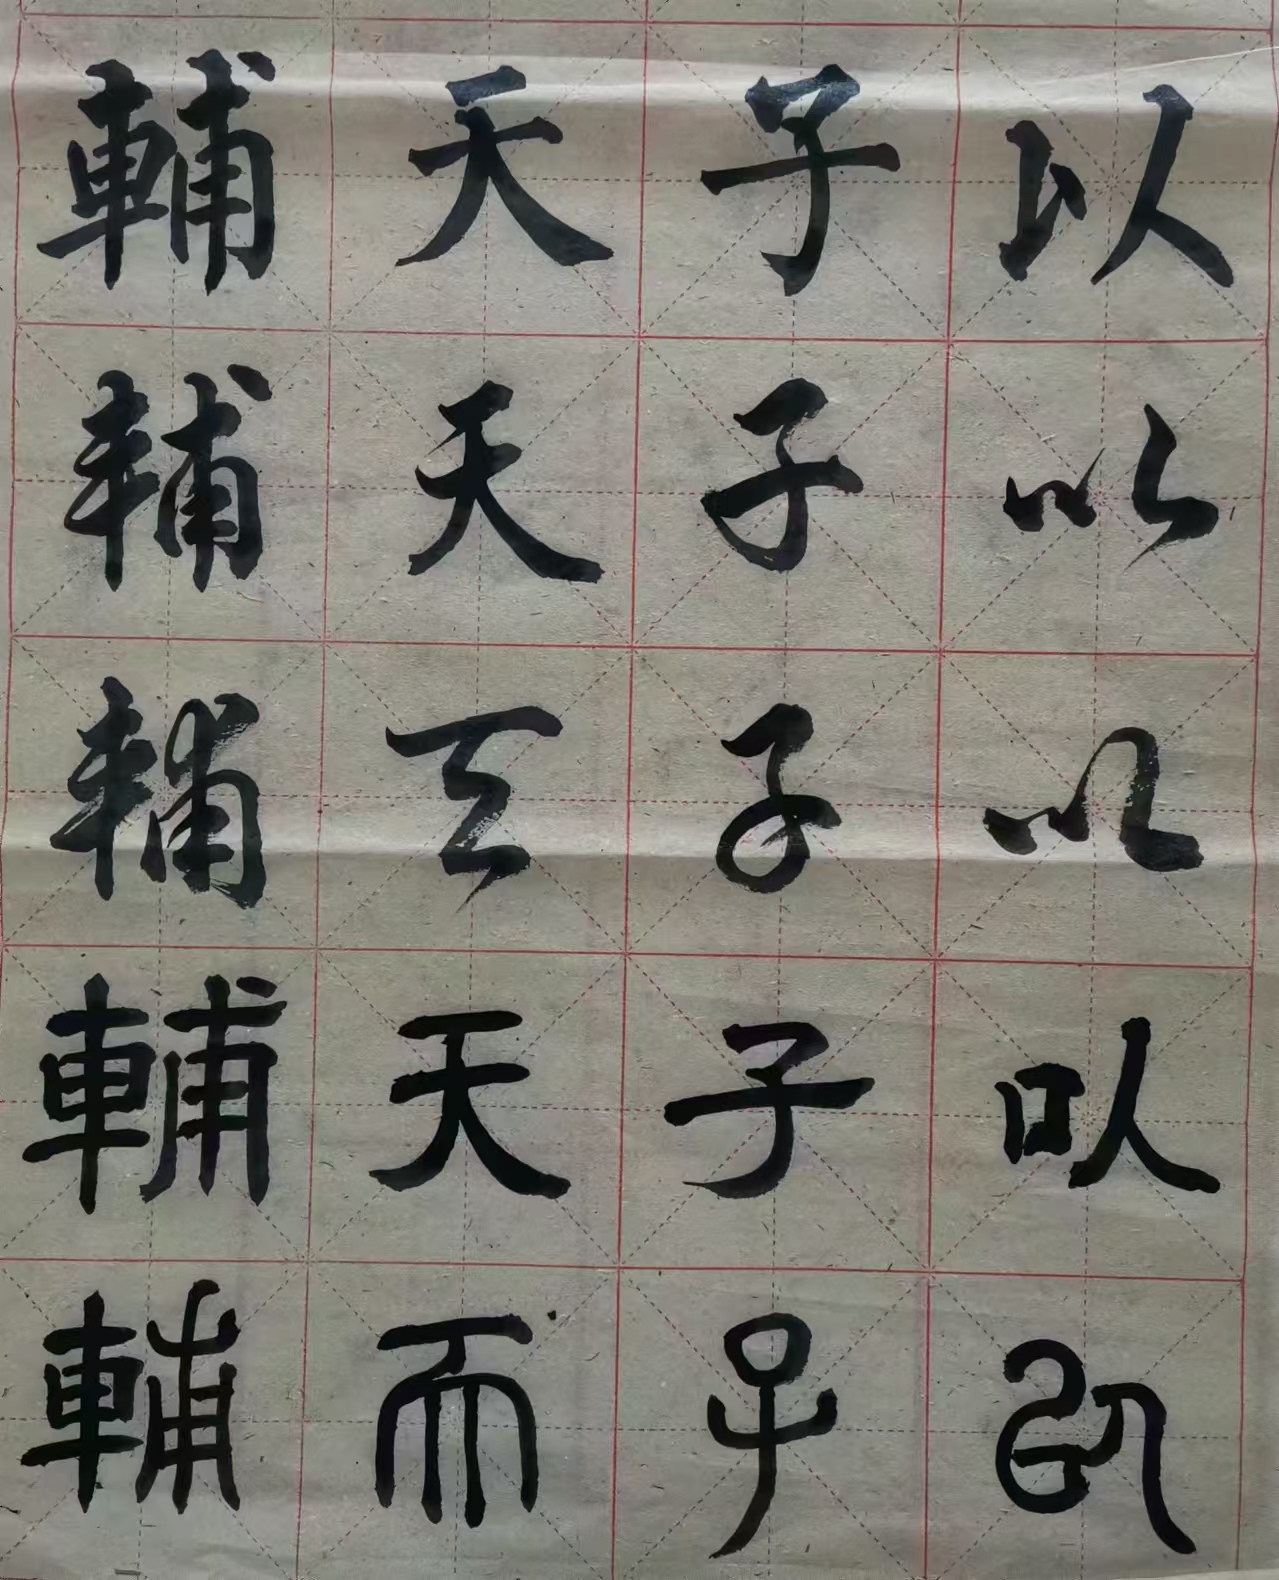 輔天子以
輔天子以
輔天子以
輔天子以
輔天子以